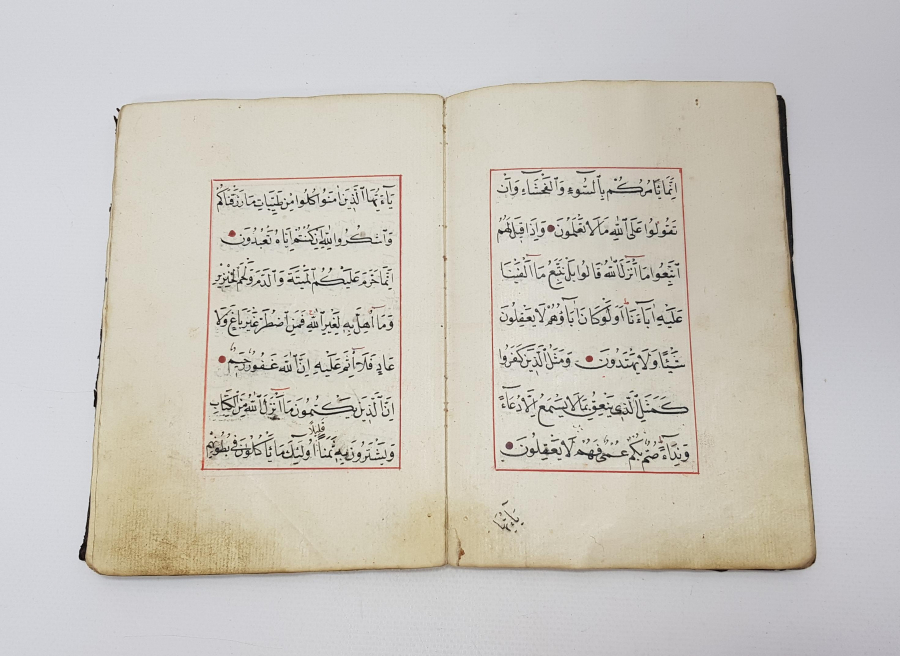 إِنَّمَا يَأْمُرُكُمْ بِالسُّوءِ وَالْفَحْشَاءِ وَأَنْ
تَقُولُوا عَلَى اللهِ مَا لَا تَعْلَمُونَ وَإِذَا قِيلَ لَهُمُ
اتَّبِعُوا مَا أَنْزَلَ اللهُ قَالُوا بَلْ نَتَّبِعُ مَا أَلْفَيْنَا
عَلَيْهِ آبَاءَنَا أَوَلَوْ كَانَ آبَاؤُهُمْ لَا يَعْقِلُونَ
شَيْئًا وَلَا يَهْتَدُونَ وَمَثَلُ الَّذِينَ كَفَرُوا
كَمَثَلِ الَّذِي يَنْعِقُ بِمَا لَا يَسْمَعُ إِلَّا دُعَاءً
وَنِدَاءً صُمٌّ بُكْمٌ عُمْيٌ فَهُمْ لَا يَعْقِلُونَ
يَاءَيُّهَا
يَاءَيُّهَا الَّذِينَ آمَنُوا كُلُوا مِنْ طَيِّبَاتِ مَا رَزَقْنَاكُمْ
وَاشْكُرُوا لِلهِ إِنْ كُنْتُمْ إِيَّاهُ تَعْبُدُونَ
إِنَّمَا حَرَّمَ عَلَيْكُمُ الْمَيْتَةَ وَالدَّمَ وَلَحْمَ الْخِنْزِيرِ
وَمَا أُهِلَّ بِهِ لِغَيْرِ اللهِ فَمَنِ اضْطُرَّ غَيْرَ بَاغٍ وَلَا
عَادٍ فَلَا إِثْمَ عَلَيْهِ إِنَّ اللهَ غَفُورٌ رَحِيمٌ
إِنَّ الَّذِينَ يَكْتُمُونَ مَا أَنْزَلَ اللهُ مِنَ الْكِتَابِ
وَيَشْتَرُونَ بِهِ ثَمَنًا قَلِيلًا أُولَئِكَ مَا يَأْكُلُونَ فِي بُطُونِهِمْ